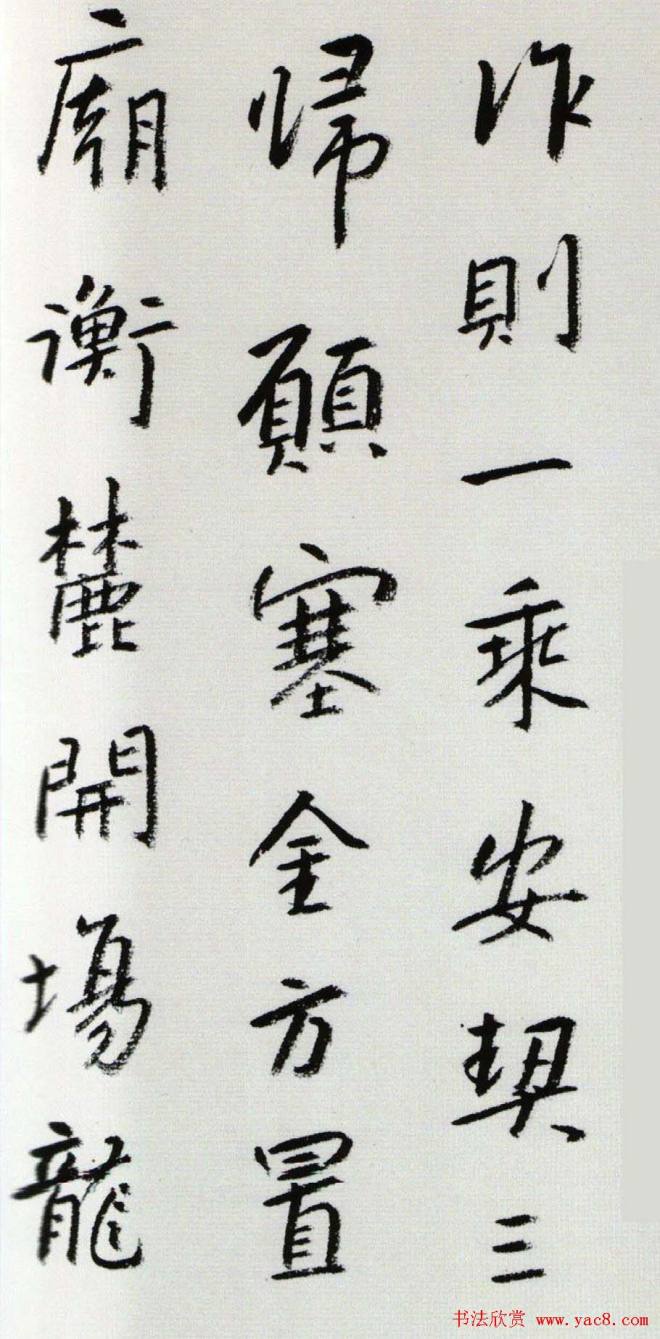 作則一乘安契三
帰願塞全方置
廟衡麓開場龍
书法欣赏 www.yac8.com